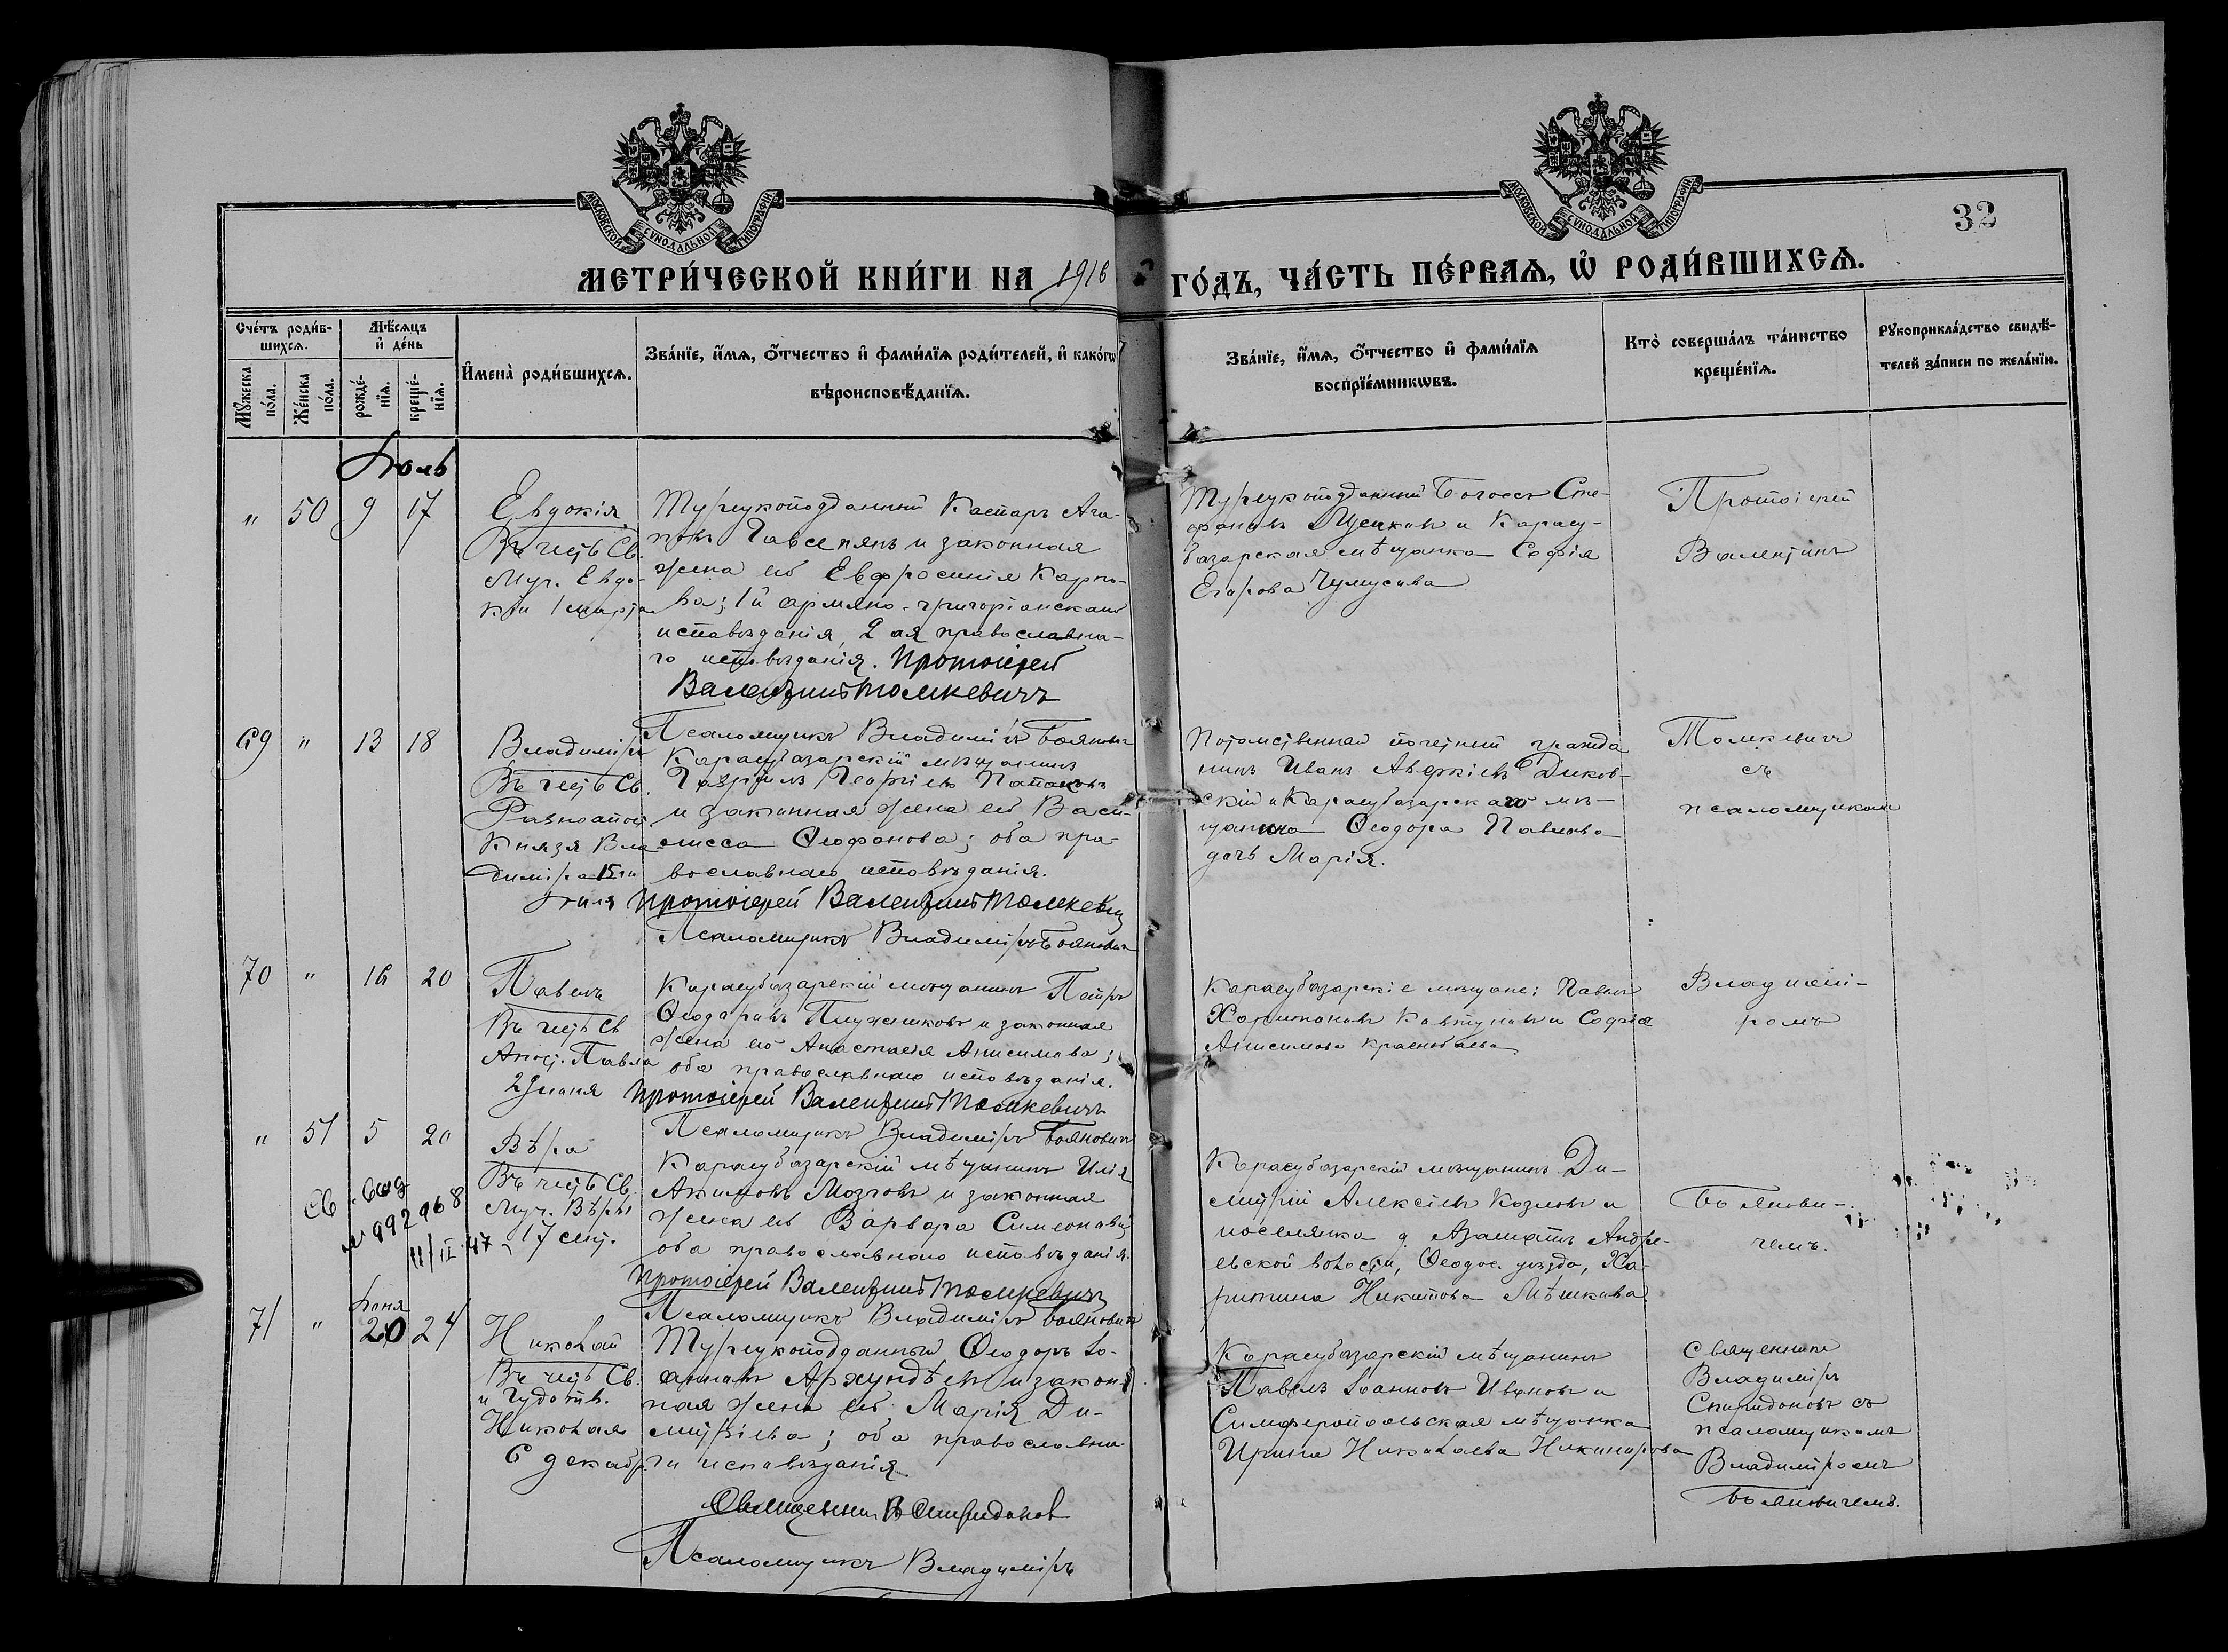 МОСКОВСКОЙ СѴНОДАЛЬНОЙ ТИПОГРАФІИ
МОСКОВСКОЙ СѴНОДАЛЬНОЙ ТИПОГРАФІИ
32
МЕТРИ́ЧЕСКОЙ КНИ́ГИ НА 1916 ГО́ДЪ, ЧА́СТЬ ПЕ́РВАѦ, Ѡ҆ РОДИ́ВШИХСѦ.
Сче́тъ роди́в-
шихсѧ.
Мѣ́сѧцъ
и҆ де́нь
Мꙋ́жеска
по́ла.
Же́нска
по́ла.
рожде́-
нїѧ.
креще́-
нїѧ.
И҆мена̀ роди́вшихсѧ.
Зва́нїе, и҆́мѧ, ѻ҆́тчество и҆ фами́лїѧ роди́телей, и҆ како́гѡ
вѣроисповѣ́данїѧ.
Зва́нїе, и҆́мѧ, ѻ҆́тчество и҆ фами́лїѧ
воспрїе́мникѡвъ.
Кто̀ соверша́лъ та́инство
креще́нїѧ.
Рꙋкоприкла́дство свидѣ́-
телей за́писи по жела́нїю.
Іюль
" 50 9 17
Евдокія
Въ честь Св.
Муч. Евдо-
кіи 1 марта
Турецкоподданный Каспаръ Ага-
повъ Гавсепянъ и законная
жена его Евфросинія Карпо-
ва; 1й армяно-григоріанскаго
исповѣданія, 2ая православна-
го исповѣданія. Протоіерей
Валентинъ Томкевичъ
Псаломщикъ Владиміръ Бояновичъ
Турецкоподданный Богосъ Сте-
фановъ и Карасу-
базарская мѣщанка Софія
Егорова
Протоіерей
Валентинъ
69 " 13 18
Владиміръ
Въ честь Св.
Равноапос
Князя Вла-
диміра 15го
Іюля
Карасубазарскій мѣщанинъ
Гавріилъ Георгіевъ
и законная жена его Васи-
лисса Ѳеофанова; оба пра-
вославнаго исповѣданія.
Протоіерей Валентинъ Томкевичъ
Псаломщикъ Владиміръ Бояновичъ
Потомственный почетный гражда
нинъ Иванъ Авдкіевъ Диков-
скій и Карасубазарскаго мѣ-
щанина Ѳеодора Павлова
дочь Марія.
Томкевичъ
съ
псаломщикомъ
70 " 16 20
Павелъ
Въ честь Св
Апос. Павла
29 іюня
Карасубазарскій мѣщанинъ Петръ
Ѳеодоровъ Плужниковъ и законная
жена его Анастасія Анисимова;
оба православнаго исповѣданія.
Протоіерей Валентинъ Томкевичъ
Псаломщикъ Владиміръ Бояновичъ
Карасубазарскіе мѣщане: Павелъ
Харитоновъ Ковтуновъ и Софія
Анисимова
Владимі-
ромъ
" 51 5 20
Св
№ 992968
11/II 47
Вѣра
Въ честь Св.
Муч. Вѣры
17 сент.
Карасубазарскій мѣщанинъ Илія
Акимовъ Мозговъ и законная
жена его Варвара Симеонова;
оба православнаго исповѣданія.
Протоіерей Валентинъ Томкевичъ
Псаломщикъ Владиміръ Бояновичъ
Карасубазарскій мѣщанинъ Ди-
митрій Алексіевъ Козловъ и
поселянка д. Азаматъ Андре-
евской волости, Ѳеодос. уѣзда, Ха-
ритина Никитова Мѣшкова
Боянови-
чемъ.
71 " Іюня
20 24
Николай
Въ честь Св.
и Чудотв.
Николая
6 декабр.
Турецкоподданный Ѳеодоръ Іо-
анновъ и закон-
ная жена его Марія Ди-
митріева; оба православна-
го исповѣданія.
Священникъ В Спиридонов
Псаломщикъ Владиміръ
Карасубазарскій мѣщанинъ
Павелъ Іоанновъ Ивановъ и
Симферопольская мѣщанка
Ирина Николаева Никифорова
Священникъ
Владиміръ
Спиридоновъ съ
псаломщикомъ
Владиміромъ
Бояновичемъ.